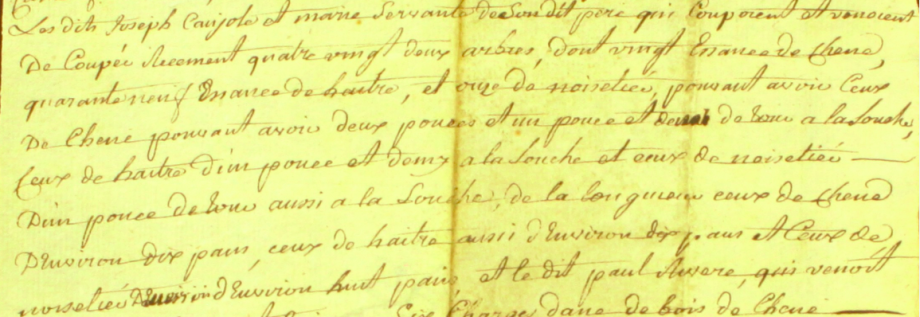 Les dits Joseph Caujole et marie Servante de Son dit pere qui Coupoient et venoient
De Coupér recement quatre vingt deux arbres, dont vingt Essance de Chene,
quarante neuf Essance de haitre, et onze de noiselié, pouvant avoir Ceux
De Chene pouvant avoir deux pouces et un pouce et de tour a la Souche,
Ceux de haitre d'un pouce et demy a la Souche et ceux de noisetiér
D'un pouce de tour aussi a la Souche, de la longueur ceux de Chene
D'Environ dix pans, ceux de haitre aussi d'Environ dix pans et Ceux de
noiselier d'Environ huit pans, et le dit paul, qui venoit
Charge d'ane de bois de Chene